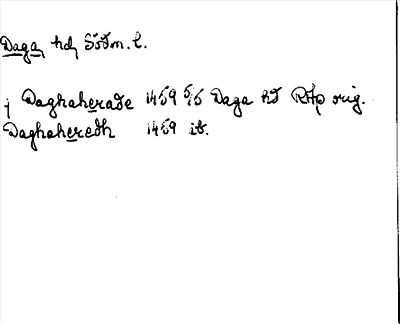 Daga, hd, Södm. l.
j Daghaherade 1459 5/5 Daga hd RAp orig.
Daghaheredh 1459 ib.